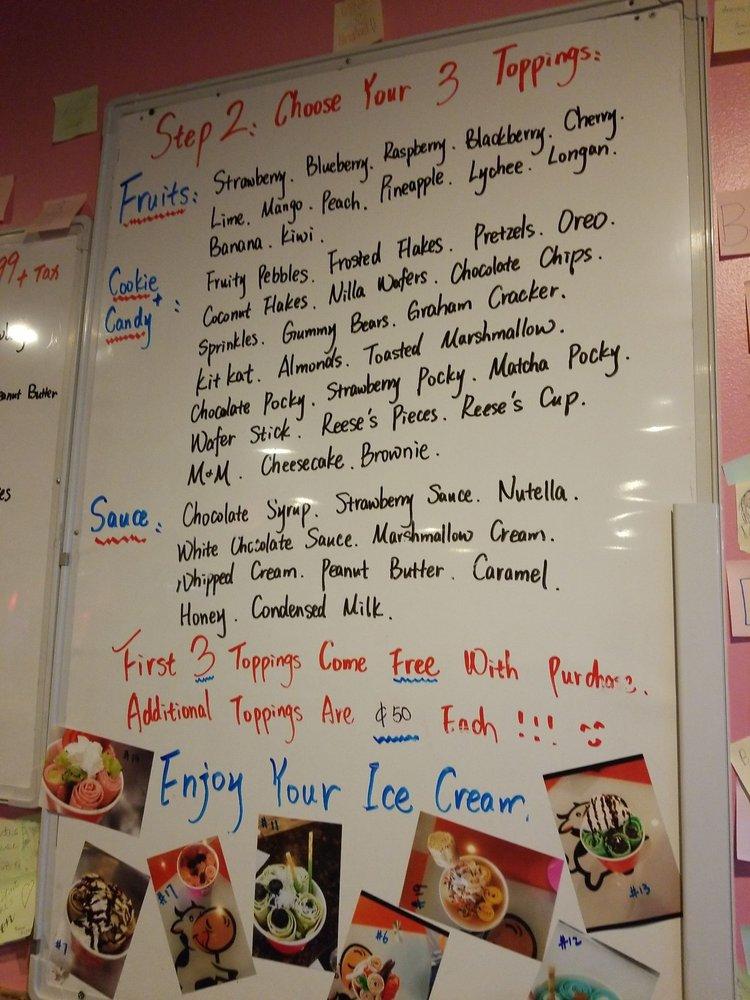 Step 2: Choose Your 3 Toppings:
Fruits: Strawberry. Blueberry. Raspberry. Blackberry. Cherry.
Lime. Mango. Peach. Pineapple. Lychee. Longan.
Banana. Kiwi.
Cookie + Candy: Fruity Pebbles. Frosted Flakes. Pretzels. Oreo.
Coconut Flakes. Nilla Wafers. Chocolate Chips.
Sprinkles. Gummy Bears. Graham Cracker.
Kit kat. Almonds. Toasted Marshmallow.
Chocolate Pocky. Strawberry Pocky. Matcha Pocky.
Wafer Stick. Reese's Pieces. Reese's Cup.
M&M. Cheesecake. Brownie.
Sauce: Chocolate Syrup. Strawberry Sauce. Nutella.
White Chocolate Sauce. Marshmallow Cream.
Whipped Cream. Peanut Butter. Caramel.
Honey. Condensed Milk.
First 3 Toppings Come Free With Purchase.
Additional Toppings Are ¢50 Each !!!
Enjoy Your Ice Cream.
99 + Tax
Butter
#7
#17
#11
#6
#19
#12
#13